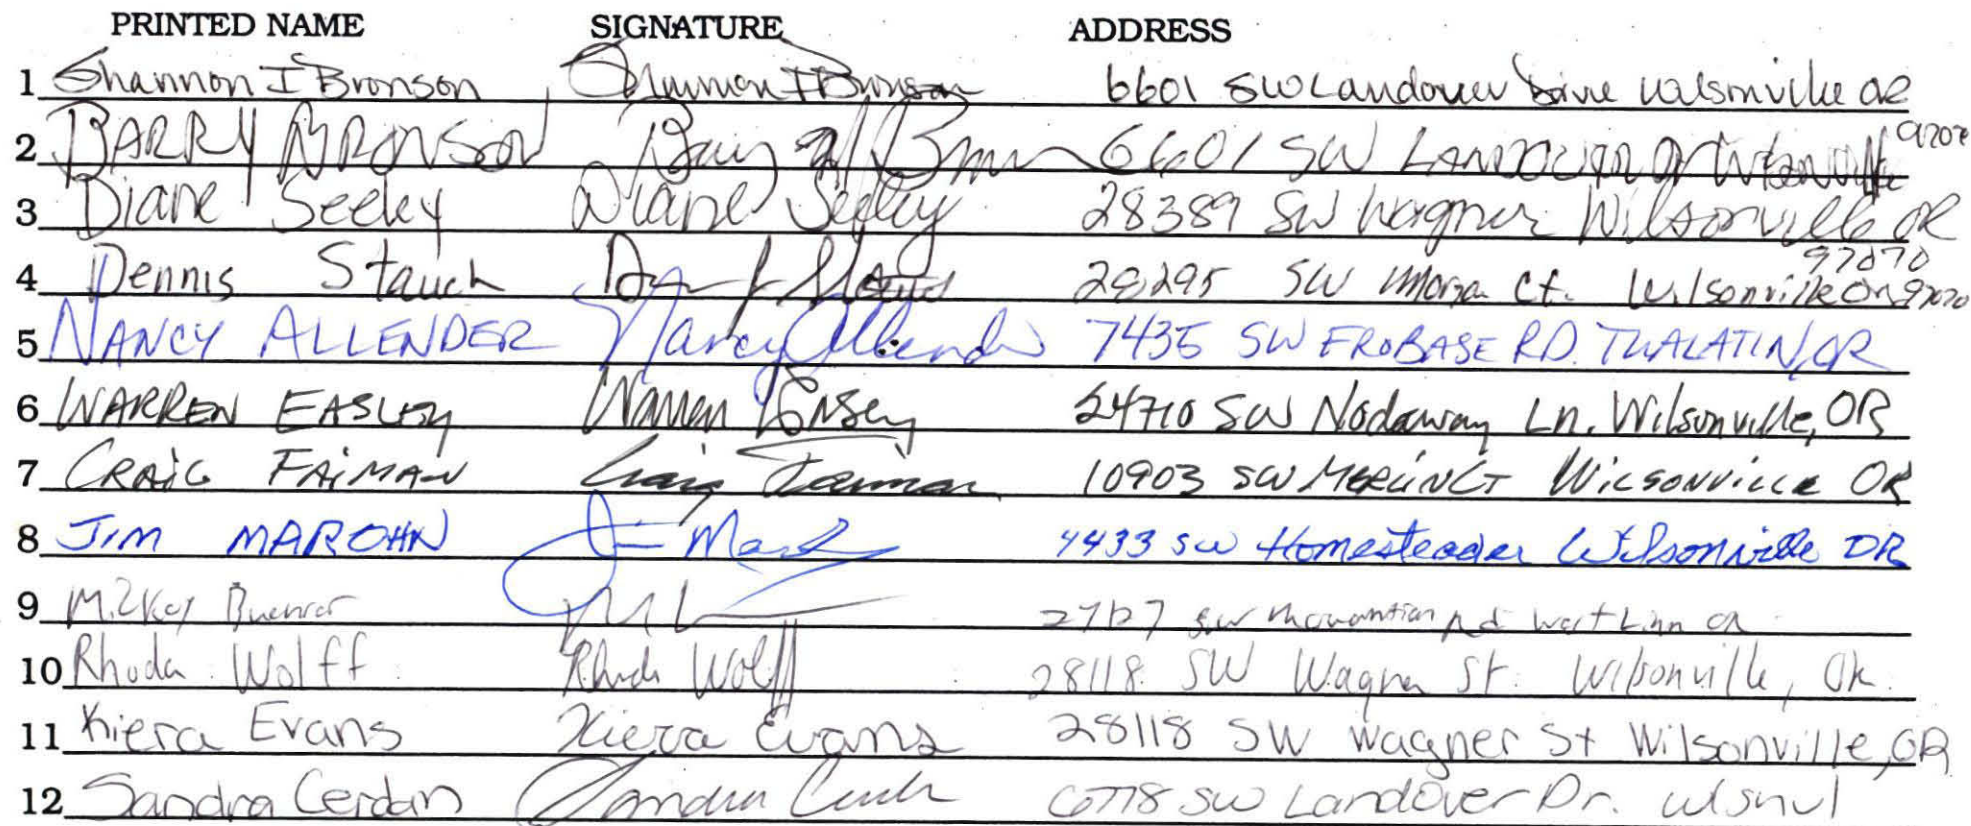 PRINTED NAME SIGNATURE ADDRESS
1 Shannon I Bronson Shannon I Bronson 6601 SW Landover Drive Wilsonville OR
2 BARRY BRONSON Barry Bron 6601 SW LANDOVER Dr Wilsonville 97070
3 Diane Seeley Diane Seeley 28389 SW Wagner Wilsonville OR 97070
4 Dennis Stauch SW Ct. Wilsonville OR 97070
5 NANCY ALLENDER Nancy Allender 7435 SW FROBASE RD. TUALATIN, OR
6 WARREN EASLEY Warren Easley 24710 SW Nodaway Ln. Wilsonville, OR
7 CRAIG FAIMAN Craig Faiman 10903 SW MERLIN CT WILSONVILLE OR
8 JIM MAROHN Jim SW Homesteader Wilsonville OR
9 SW Rd West Linn OR
10 Rhoda Wolff Rhoda Wolff 28118 SW Wagner St. Wilsonville, OR
11 Kiera Evans Kiera Evans 28118 SW Wagner St Wilsonville, OR
12 Sandra Cerdan Sandra 6778 SW Landover Dr. Wlsnvl